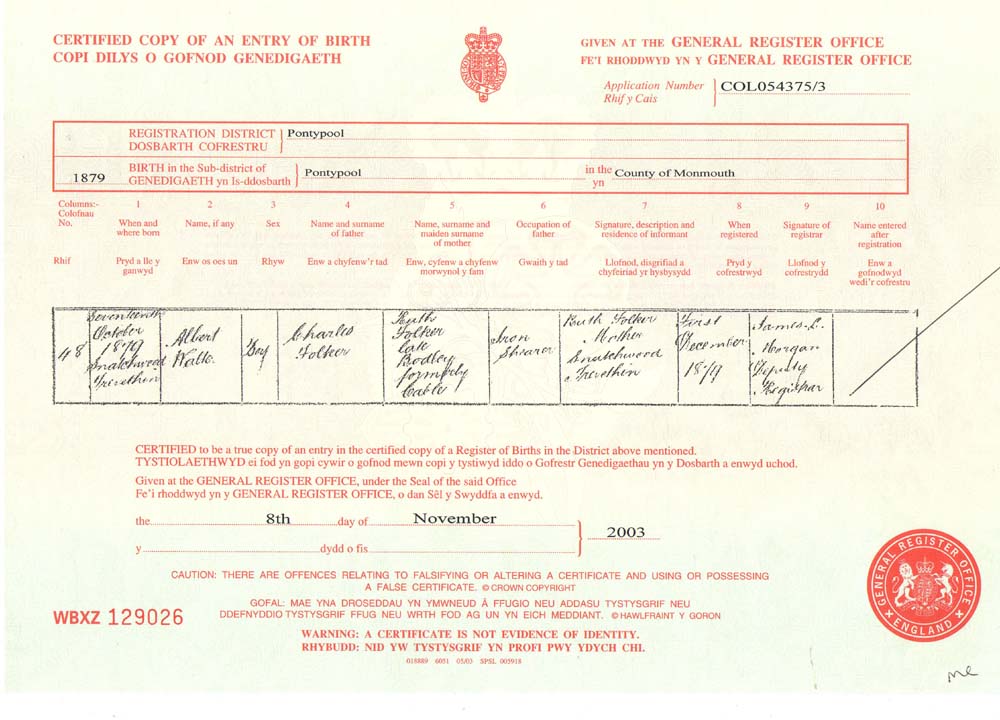 CERTIFIED COPY OF AN ENTRY OF BIRTH
COPI DILYS O GOFNOD GENEDIGAETH
GIVEN AT THE GENERAL REGISTER OFFICE
FE'I RHODDWYD YN Y GENERAL REGISTER OFFICE
Application Number COL054375/3
Rhif y Cais
REGISTRATION DISTRICT Pontypool
DOSBARTH COFRESTRU
1879 BIRTH in the Sub-district of Pontypool in the County of Monmouth
GENEDIGAETH yn Is-ddosbarth yn
Columns:- 1 2 3 4 5 6 7 8 9 10
Colofnau
No. When and where born Name, if any Sex Name and surname of father Name, surname and maiden surname of mother Occupation of father Signature, description and residence of informant When registered Signature of registrar Name entered after registration
Rhif Pryd a lle y ganwyd Enw os oes un Rhyw Enw a chyfenw'r tad Enw, cyfenw a chyfenw morwynol y fam Gwaith y tad Llofnod, disgrifiad a chyfeiriad yr hysbysydd Pryd y cofrestrwyd Llofnod y cofrestrydd Enw a gofnodwyd wedi'r cofrestru
48
Seventeenth
October
1879
Snatchwood
Trevethin
Albert
Boy
Charles
Folker
Ruth
Folker
late
Bodley
formerly
Cable
Iron
Shearer
Ruth Folker
Mother
Snatchwood
Trevethin
First
December
1879
James L.
Morgan
Deputy
Registrar
CERTIFIED to be a true copy of an entry in the certified copy of a Register of Births in the District above mentioned.
TYSTIOLAETHWYD ei fod yn gopi cywir o gofnod mewn copi y tystiwyd iddo o Gofrestr Genedigaethau yn y Dosbarth a enwyd uchod.
Given at the GENERAL REGISTER OFFICE, under the Seal of the said Office
Fe'i rhoddwyd yn y GENERAL REGISTER OFFICE, o dan Sêl y Swyddfa a enwyd.
the 8th day of November 2003
y dydd o fis
CAUTION: THERE ARE OFFENCES RELATING TO FALSIFYING OR ALTERING A CERTIFICATE AND USING OR POSSESSING
A FALSE CERTIFICATE. © CROWN COPYRIGHT
GOFAL: MAE YNA DROSEDDAU YN YMWNEUD Â FFUGIO NEU ADDASU TYSTYSGRIF NEU
DDEFNYDDIO TYSTYSGRIF FFUG NEU WRTH FOD AG UN YN EICH MEDDIANT. © HAWLFRAINT Y GORON
WBXZ 129026
WARNING: A CERTIFICATE IS NOT EVIDENCE OF IDENTITY.
RHYBUDD: NID YW TYSTYSGRIF YN PROFI PWY YDYCH CHI.
018889 6051 05/03 SPSL 005918
GENERAL REGISTER OFFICE
ENGLAND